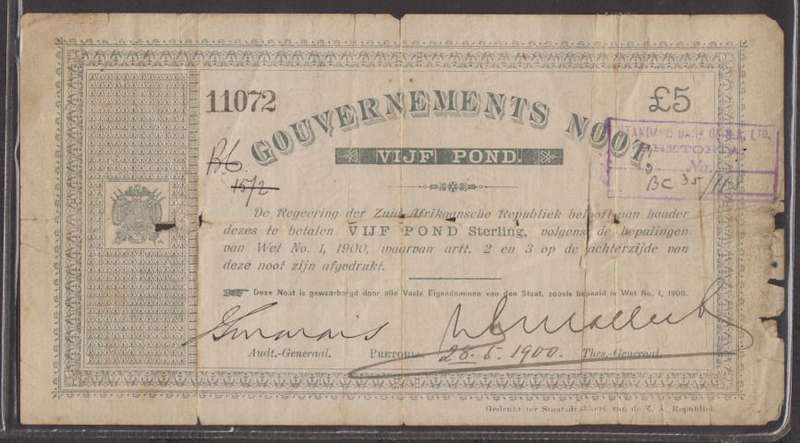 11072
£5
GOUVERNEMENTS NOOT
VIJF POND.
15/2
BC 35/115
No.
De Regeering der Zuid-Afrikaansche Republiek belooft aan houder
dezes te betalen VIJF POND Sterling, volgens de bepalingen
van Wet No. 1, 1900, waarvan artt. 2 en 3 op de achterzijde van
deze noot zijn afgedrukt.
Deze Noot is gewaarborgd door alle Vaste Eigendommen van den Staat, zooals bepaald in Wet No. 1, 1900.
Audt.-Generaal.
PRETORIA
28.5.1900.
Thes.-Generaal.
Gedrukt ter Staatsdrukkerij van de Z. A. Republiek.